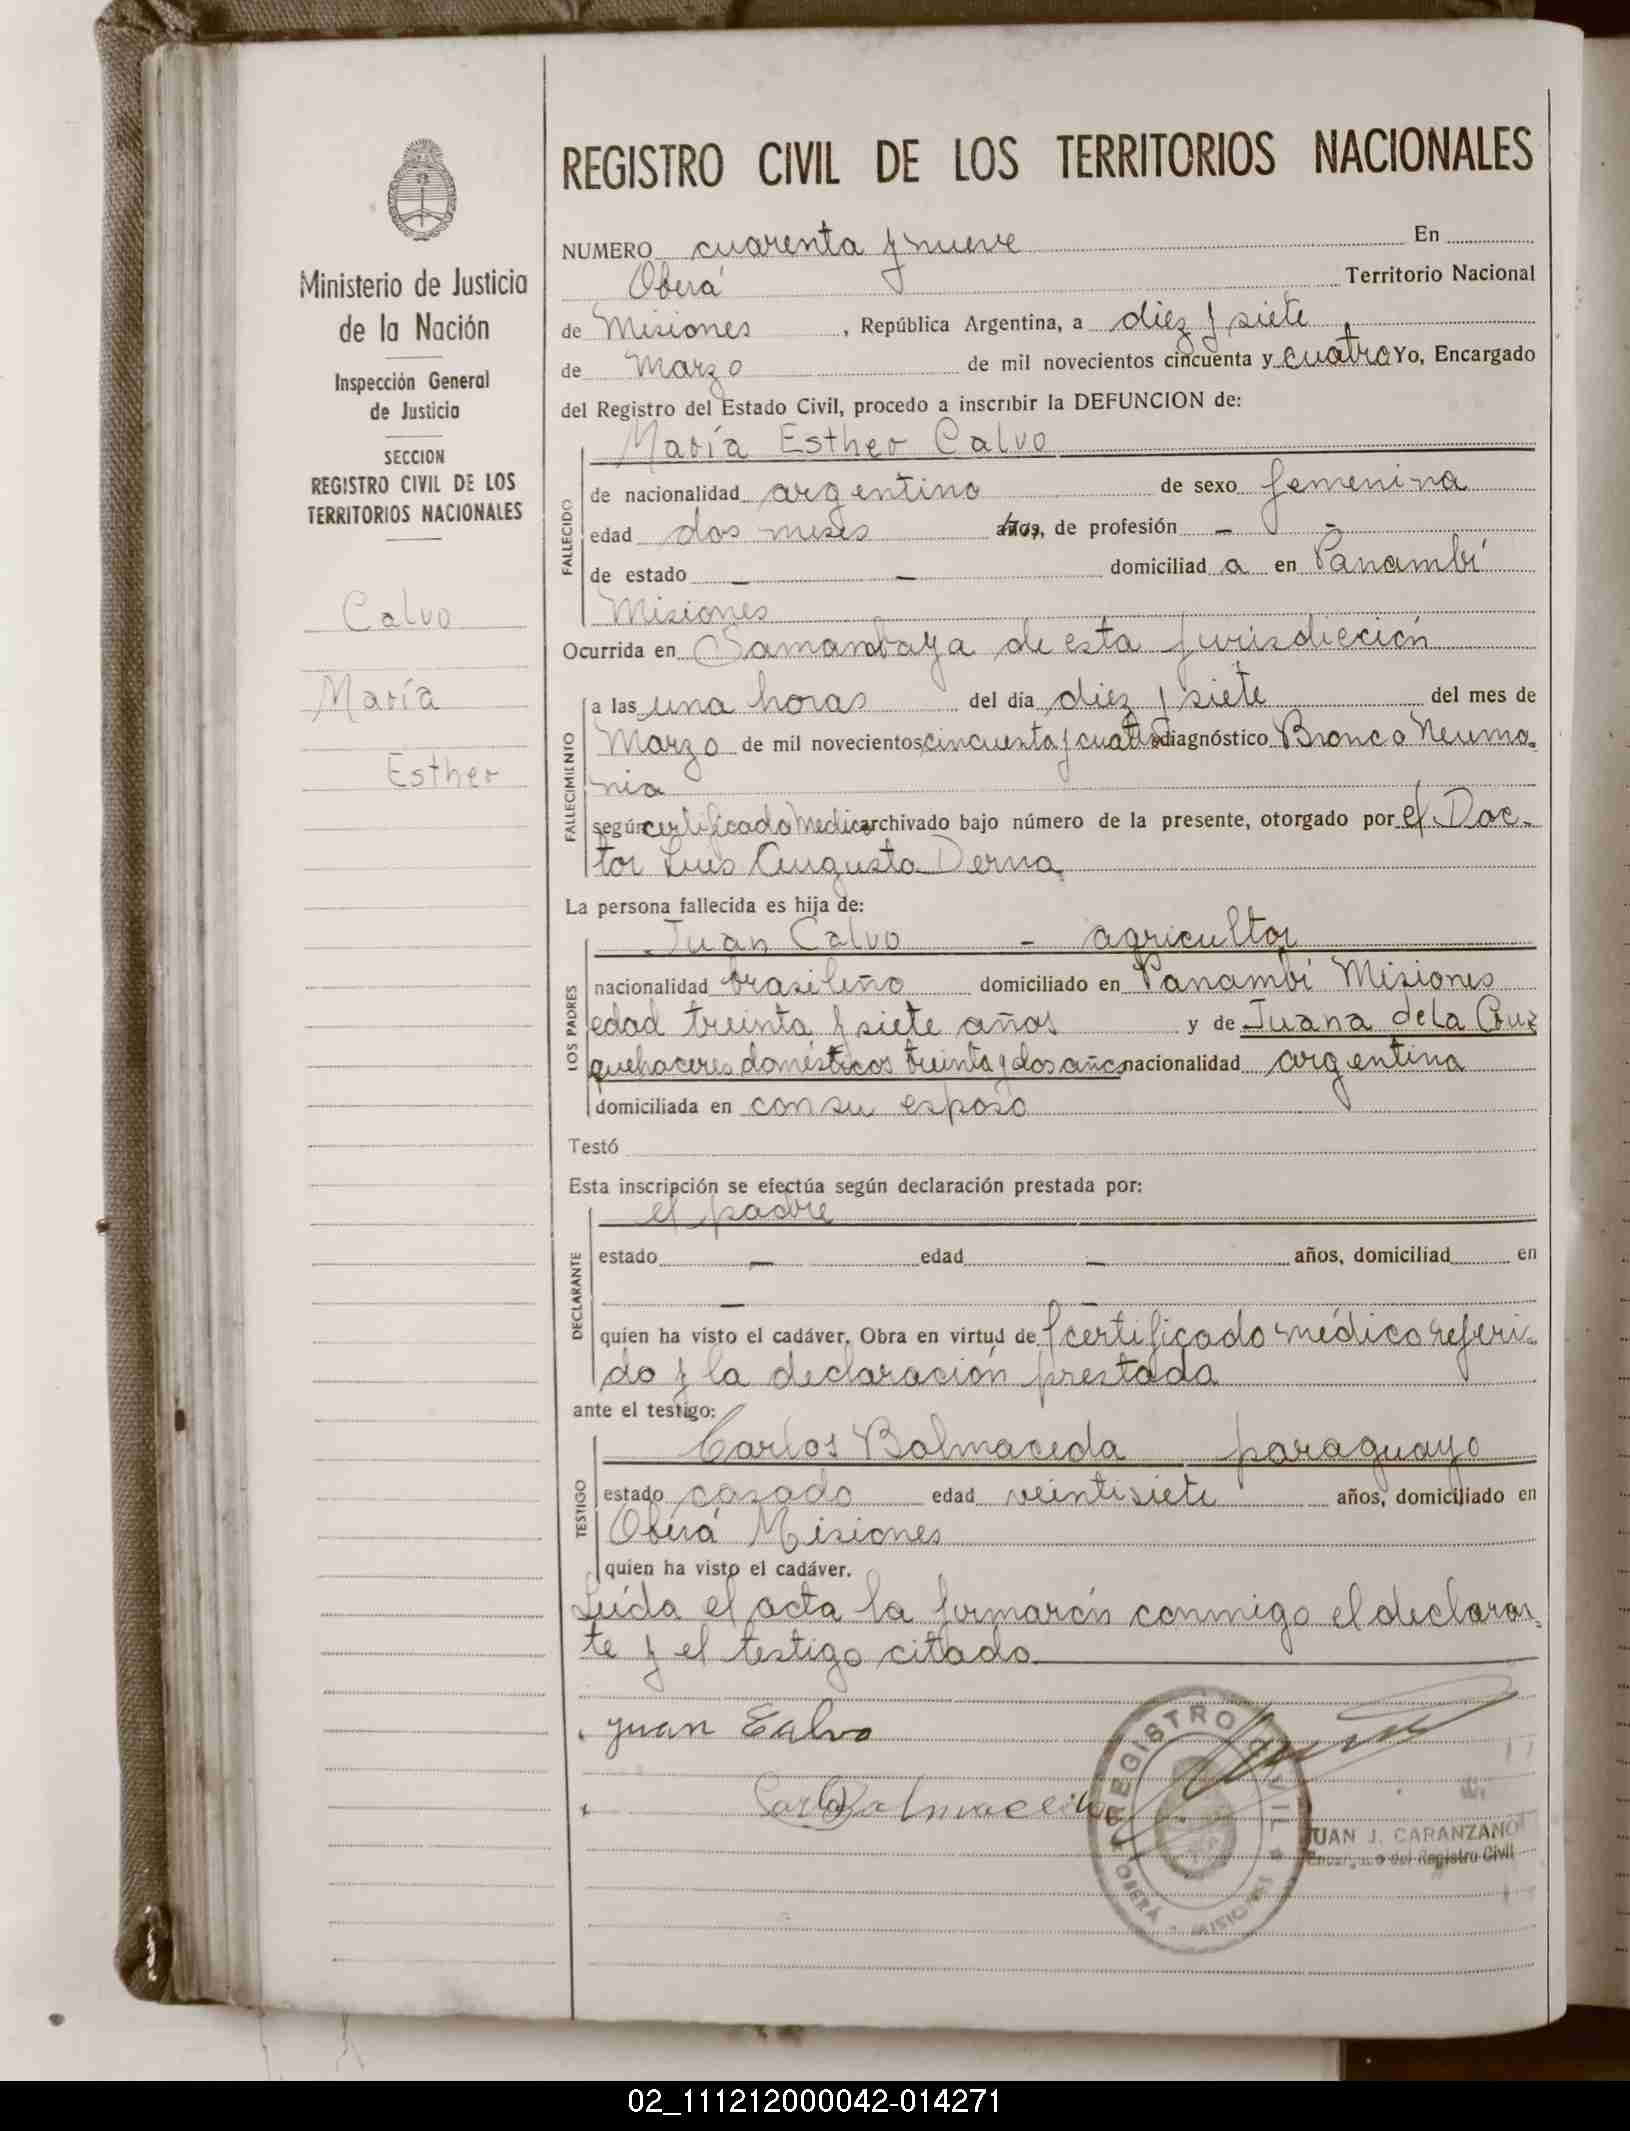 REGISTRO CIVIL DE LOS TERRITORIOS NACIONALES
Ministerio de Justicia
de la Nación
Inspección General
de Justicia
SECCION
REGISTRO CIVIL DE LOS
TERRITORIOS NACIONALES
Calvo
María
Esther
NUMERO cuarenta y nueve En
Oberá Territorio Nacional
de Misiones, República Argentina, a diez y siete
de Marzo de mil novecientos cincuenta y cuatro Yo, Encargado
del Registro del Estado Civil, procedo a inscribir la DEFUNCION de:
María Esther Calvo
FALLECIDO
de nacionalidad argentina de sexo femenina
edad dos meses años, de profesión - -
de estado - - domiciliad a en Panambí
Misiones
Ocurrida en Samambaya de esta jurisdicción
FALLECIMIENTO
a las una horas del día diez y siete del mes de
Marzo de mil novecientos cincuenta y cuatro diagnóstico Bronco Neumo-
nia
según certificado médico archivado bajo número de la presente, otorgado por el Doc-
tor Luis Augusto Derna
La persona fallecida es hija de:
Juan Calvo - agricultor
LOS PADRES
nacionalidad brasileño domiciliado en Panambí Misiones
edad treinta y siete años y de Juana de La Cruz
quehaceres domésticos treinta y dos años nacionalidad argentina
domiciliada en con su esposo
Testó
Esta inscripción se efectúa según declaración prestada por:
el padre
DECLARANTE
estado - edad - años, domiciliad en
-
quien ha visto el cadáver. Obra en virtud de certificado médico referi-
do y la declaración prestada
ante el testigo:
Carlos Balmaceda paraguayo
TESTIGO
estado casado edad veintisiete años, domiciliado en
Oberá Misiones
quien ha visto el cadáver.
Leída el acta la firmarón conmigo el declaran-
te y el testigo citado
Juan Calvo
Carlos Balmaceda
REGISTRO CIVIL
OBERÁ - MISIONES
JUAN J. CARANZANO
Encargado del Registro Civil
02_111212000042-014271